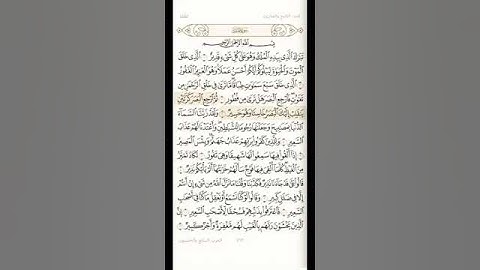 بِسْمِ ٱللَّهِ ٱلرَّحْمَٰنِ ٱلرَّحِيمِ
تَبَٰرَكَ ٱلَّذِي بِيَدِهِ ٱلْمُلْكُ وَهُوَ عَلَىٰ كُلِّ شَيْءٍ قَدِيرٌ ۝ ٱلَّذِي خَلَقَ
ٱلْمَوْتَ وَٱلْحَيَوٰةَ لِيَبْلُوَكُمْ أَيُّكُمْ أَحْسَنُ عَمَلًا وَهُوَ ٱلْعَزِيزُ ٱلْغَفُورُ
ٱلَّذِي خَلَقَ سَبْعَ سَمَٰوَٰتٍ طِبَاقًا مَّا تَرَىٰ فِي خَلْقِ ٱلرَّحْمَٰنِ مِن
تَفَٰوُتٍ فَٱرْجِعِ ٱلْبَصَرَ هَلْ تَرَىٰ مِن فُطُورٍ ۝ ثُمَّ ٱرْجِعِ ٱلْبَصَرَ كَرَّتَيْنِ
يَنقَلِبْ إِلَيْكَ ٱلْبَصَرُ خَاسِئًا وَهُوَ حَسِيرٌ ۝ وَلَقَدْ زَيَّنَّا ٱلسَّمَآءَ
ٱلدُّنْيَا بِمَصَٰبِيحَ وَجَعَلْنَٰهَا رُجُومًا لِّلشَّيَٰطِينِ وَأَعْتَدْنَا لَهُمْ عَذَابَ
ٱلسَّعِيرِ ۝ وَلِلَّذِينَ كَفَرُوا۟ بِرَبِّهِمْ عَذَابُ جَهَنَّمَ وَبِئْسَ ٱلْمَصِيرُ
۝ إِذَآ أُلْقُوا۟ فِيهَا سَمِعُوا۟ لَهَا شَهِيقًا وَهِيَ تَفُورُ ۝ تَكَادُ تَمَيَّزُ
مِنَ ٱلْغَيْظِ كُلَّمَآ أُلْقِيَ فِيهَا فَوْجٌ سَأَلَهُمْ خَزَنَتُهَآ أَلَمْ يَأْتِكُمْ نَذِيرٌ ۝
قَالُوا۟ بَلَىٰ قَدْ جَآءَنَا نَذِيرٌ فَكَذَّبْنَا وَقُلْنَا مَا نَزَّلَ ٱللَّهُ مِن شَيْءٍ إِنْ أَنتُمْ
إِلَّا فِي ضَلَٰلٍ كَبِيرٍ ۝ وَقَالُوا۟ لَوْ كُنَّا نَسْمَعُ أَوْ نَعْقِلُ مَا كُنَّا فِيٓ أَصْحَٰبِ
ٱلسَّعِيرِ ۝ فَٱعْتَرَفُوا۟ بِذَنۢبِهِمْ فَسُحْقًا لِّأَصْحَٰبِ ٱلسَّعِيرِ ۝ إِنَّ
ٱلَّذِينَ يَخْشَوْنَ رَبَّهُم بِٱلْغَيْبِ لَهُم مَّغْفِرَةٌ وَأَجْرٌ كَبِيرٌ ۝